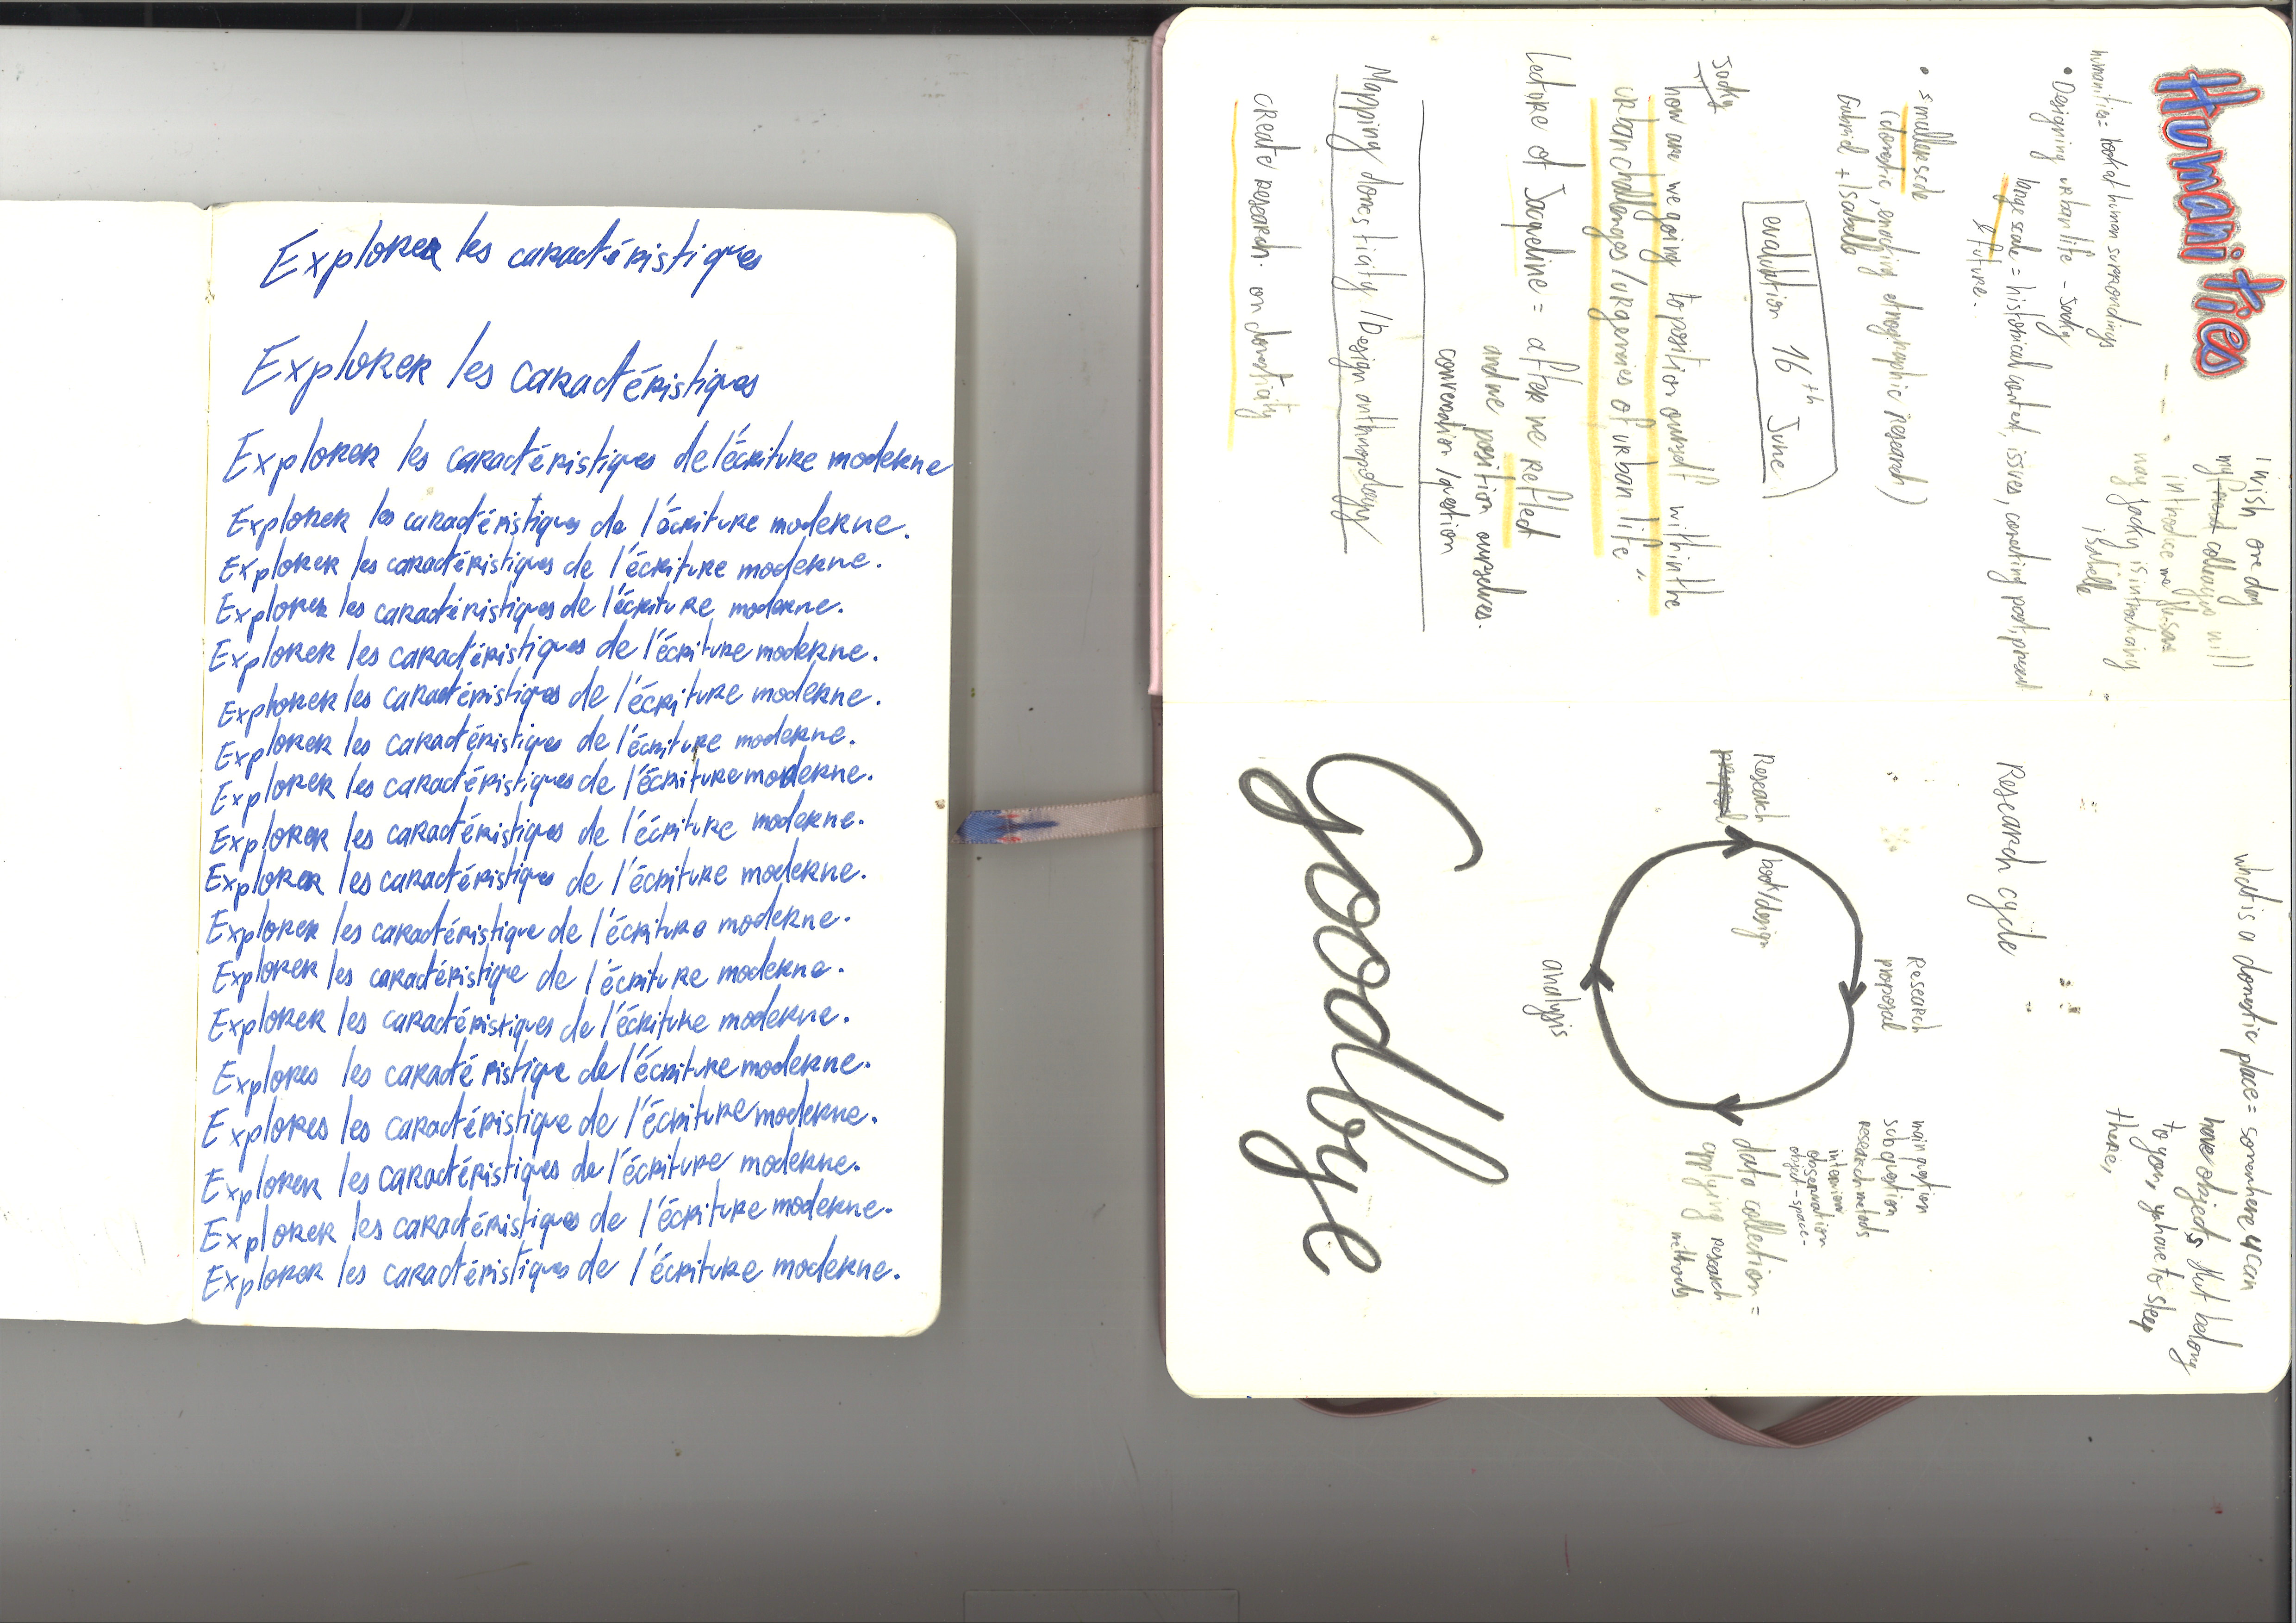 Explorer les caractéristiques
Explorer les caractéristiques
Explorer les caractéristiques de l'écriture moderne
Explorer les caractéristiques de l'écriture moderne.
Explorer les caractéristiques de l'écriture moderne.
Explorer les caractéristiques de l'écriture moderne.
Explorer les caractéristiques de l'écriture moderne.
Explorer les caractéristiques de l'écriture moderne.
Explorer les caractéristiques de l'écriture moderne.
Explorer les caractéristiques de l'écriture moderne.
Explorer les caractéristiques de l'écriture moderne.
Explorer les caractéristiques de l'écriture moderne.
Explorer les caractéristique de l'écriture moderne.
Explorer les caractéristique de l'écriture moderne.
Explorer les caractéristiques de l'écriture moderne.
Explores les caractéristique de l'écriture moderne.
Explores les caractéristique de l'écriture moderne.
Explorer les caractéristiques de l'écriture moderne.
Explorer les caractéristiques de l'écriture moderne.
Explorer les caractéristiques de l'écriture moderne.
Humanities
I wish one day
my collegues will
introduce me the same
way Jacky is introducing
isabelle "
humanities = look at human surrondings
• Designing urban life - Jacky
large scale = historical context, issues, conecting past, present
& future.
• smaller scale
(domestic, enacting etnographic research)
Gabriel + Isabelle
evaluation 16th June
Jacky
how are we going to position ourself within the
urban challenges / urgencies of urban life "
Lecture of Jaqueline = after we reflect
and we position ourselves.
conversation / question
Mapping domesticity / Design anthropology
create research on domesticity
what is a domestic place = somewhere u can
have objects that belong
to you, u have to sleep
there,
Research cycle
Research
proposal
main qestion
sub question
research metods
interview
observation
object - space -
data collection =
applying research
methods
analysis
Research
book/design
Goodbye